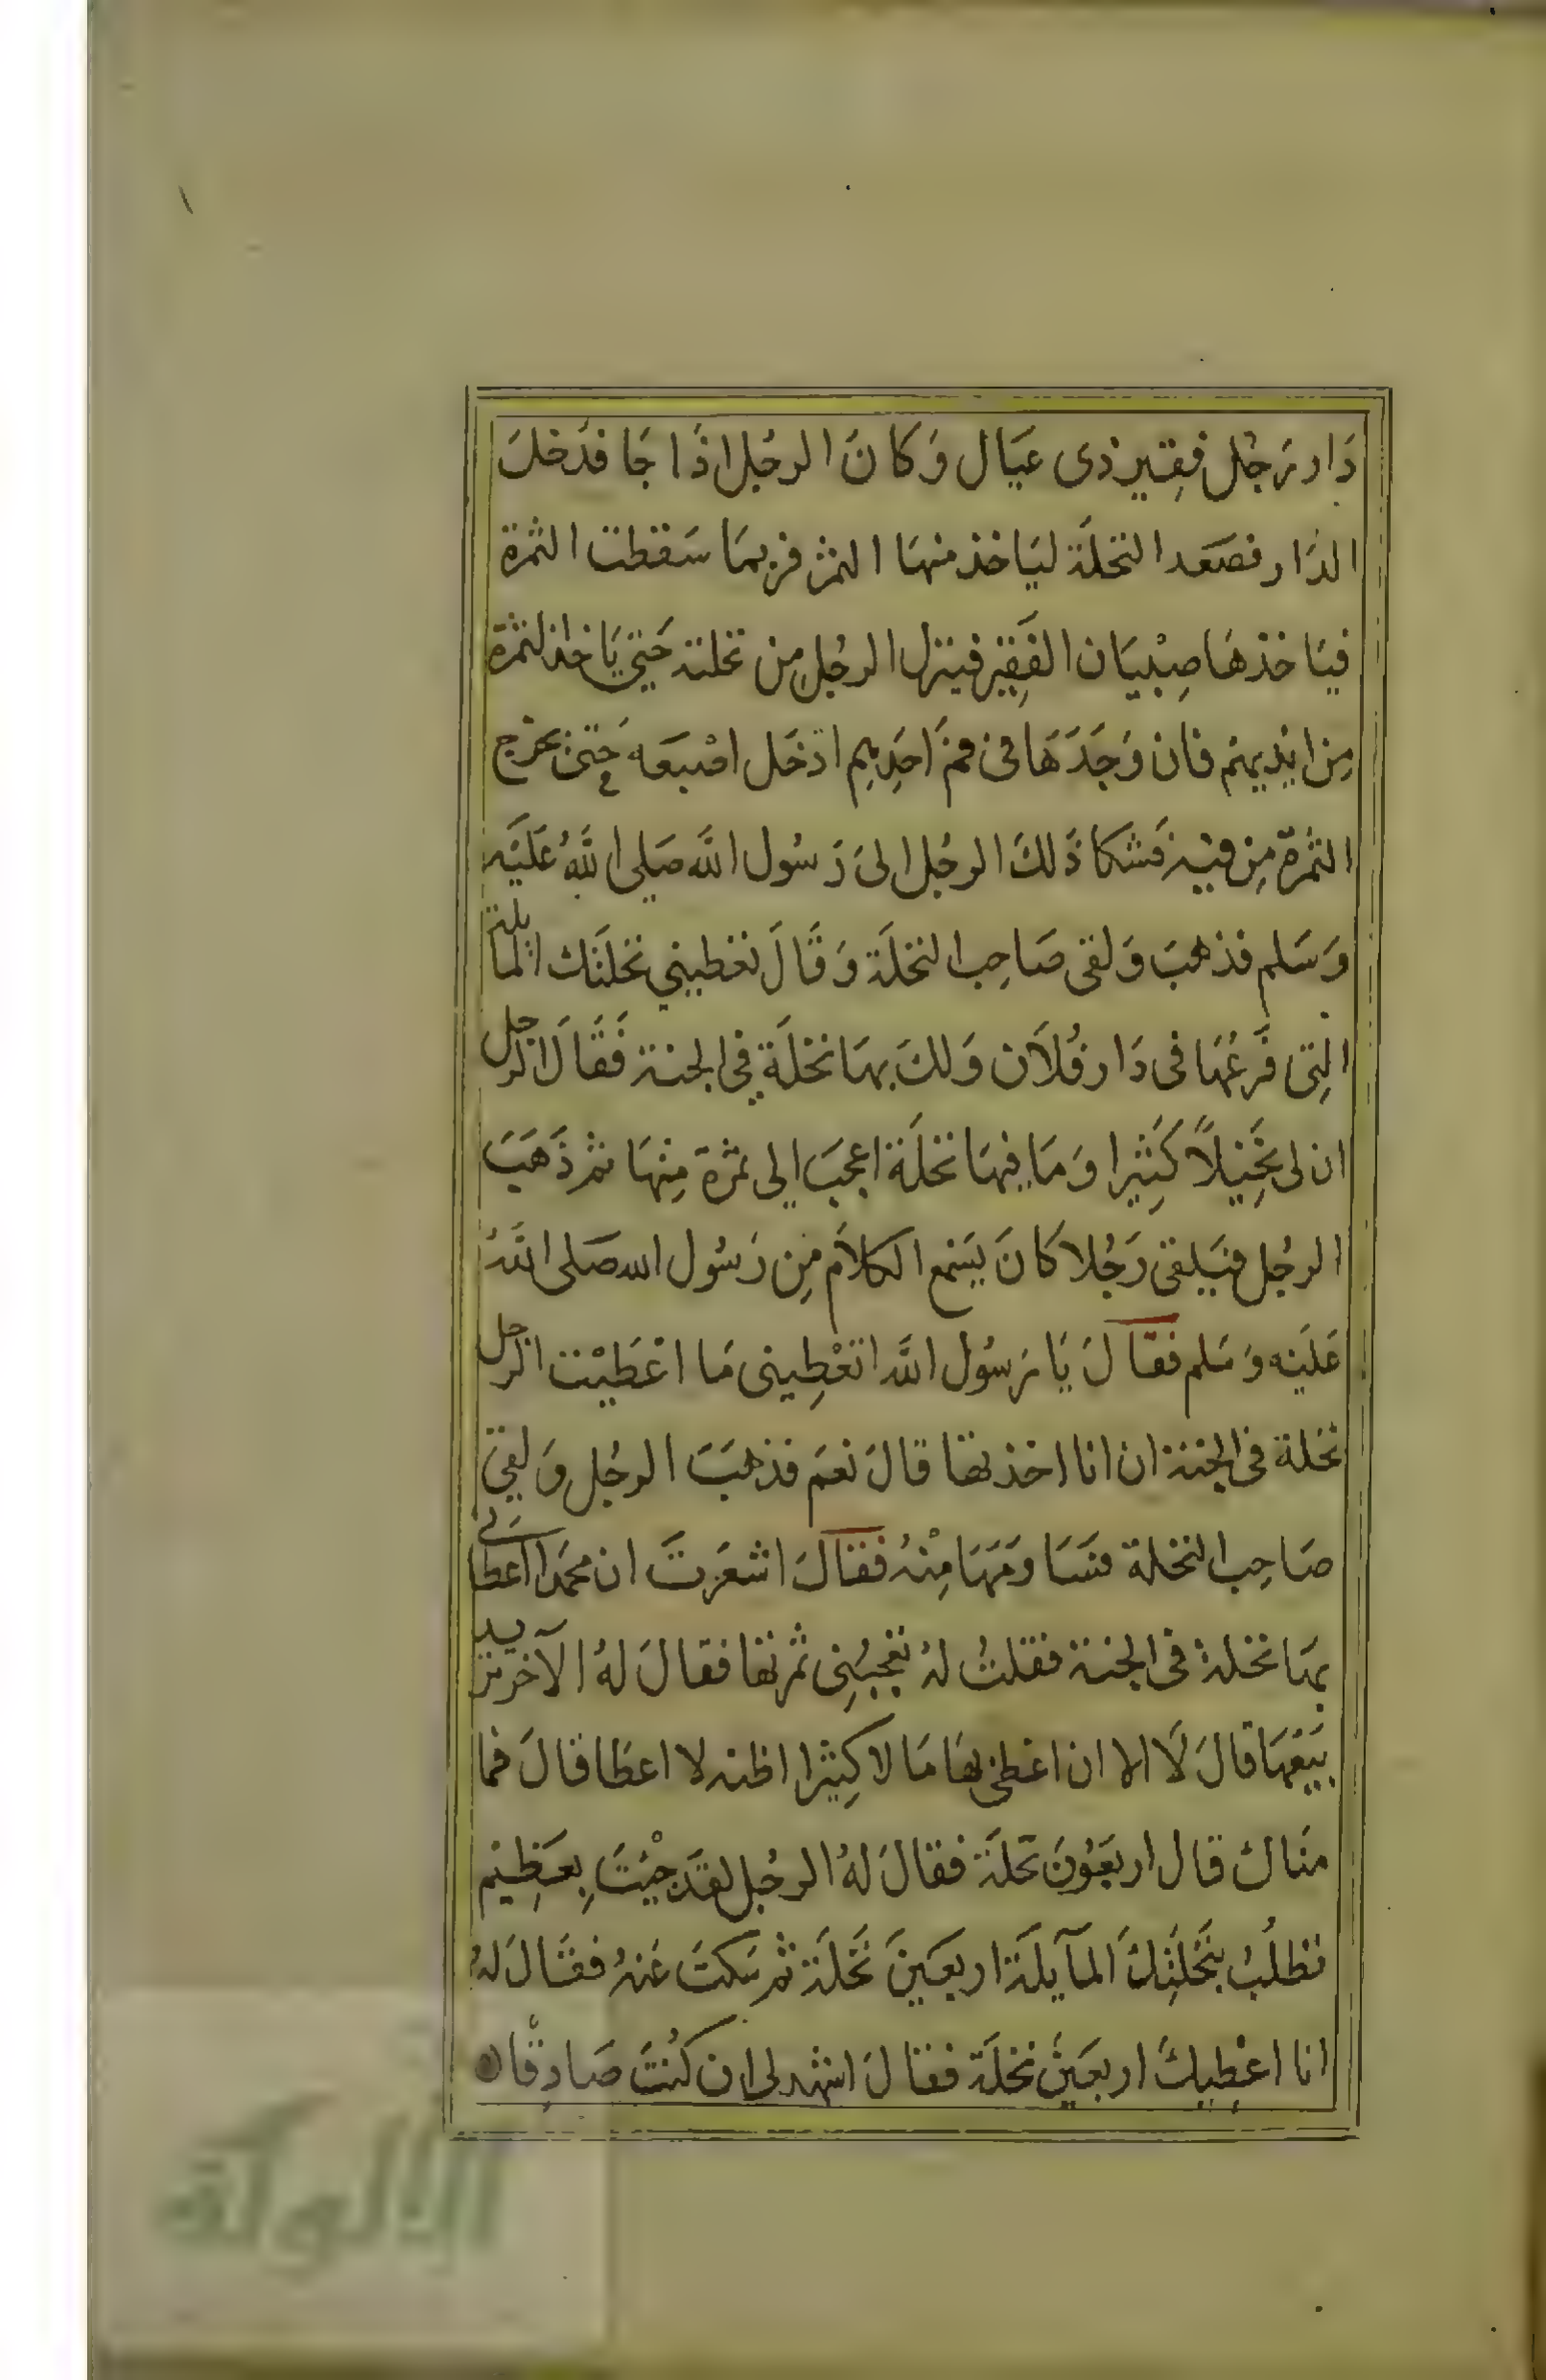 دَار رَجُل فقِير ذى عيَال وَكانَ الرجُل اذَا جَا فدَخلَ
الدَار فصَعَد النخلَة ليَاخذ منهَا التمر فربمَا سَقطت الثمرة
فيَاخذهَا صِبْيَان الفَقِير فينزل الرجُل مِن نخلته حَتي يَاخذ الثمرة
مِن ايْديهمْ فان وَجَدَهَا فى فمَ احَدِهِم ادخَل اصْبعَه حَتى يخرج
الثمرة مِن فيْه فشكا ذَلكَ الرجُل الىَ رَسُول اللَّه صَلى اللَّهُ عَليَه
وَسَلم فذهبَ وَلقى صَاحِب النخلَة وَقَالَ تعْطيني نخلَتك المايلة
التِى فَرعُهَا فى دَار فُلاَن وَلكَ بهَا نخلَة في الجنة فَقَالَ الرجل
ان لى نَخِيْلاً كَثِيْرا وَمَا فيهَا نخلَة اعجبَ الى ثمرة مِنْهَا ثم ذَهَبَ
الرجُل فيَلقى رَجُلا كَانَ يَسْمع الكلاَم مِن رَسُول الله صَلى اللَّهُ
عَليْه وَسَلم فقَالَ يَا رَسُول اللَّه اتعْطِينى مَا اعْطَيْت الرجل
نخلة فى الجنة ان انا اخذتها قالَ نعَم فذهَبَ الرجُل وَلقِىَ
صَاحِب النخلة فسَاوَمَهَا مِنْهُ فقَالَ اشعَرتَ ان محمدا اعطانى
بهَا نخلة فى الجنة فقلتُ لهُ يعْجبُنِى ثمرتها فقالَ لهُ الآخر تريد
بَيْعهَا قالَ لَا الا ان اعْطى بهَا مَالا كثِيْرا اظنه لا اعطَا قالَ فما
مناك قال اربَعُونَ نخلَة فقالَ لهُ الرجُل لقَد جِيْتَ بِعَظِيْم
تطلُبُ بِنَخْلَتِكَ المآيلَة اربَعَينَ نَخْلَة ثم سَكتَ عَنهُ فقَالَ لهُ
انا اعْطِيكَ اربعَينَ نخلَة فقالَ اشهد لى ان كُنْتَ صَادِقْا
الألوكة